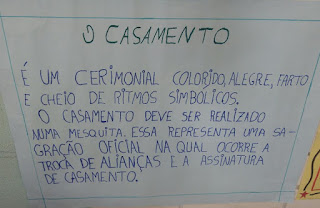 O CASAMENTO
É UM CERIMONIAL COLORIDO, ALEGRE, FARTO
E CHEIO DE RITMOS SIMBÓLICOS.
O CASAMENTO DEVE SER REALIZADO
NUMA MESQUITA. ESSA REPRESENTA UMA SA-
GRAÇÃO OFICIAL NA QUAL OCORRE A
TROCA DE ALIANÇAS E A ASSINATURA
DE CASAMENTO.